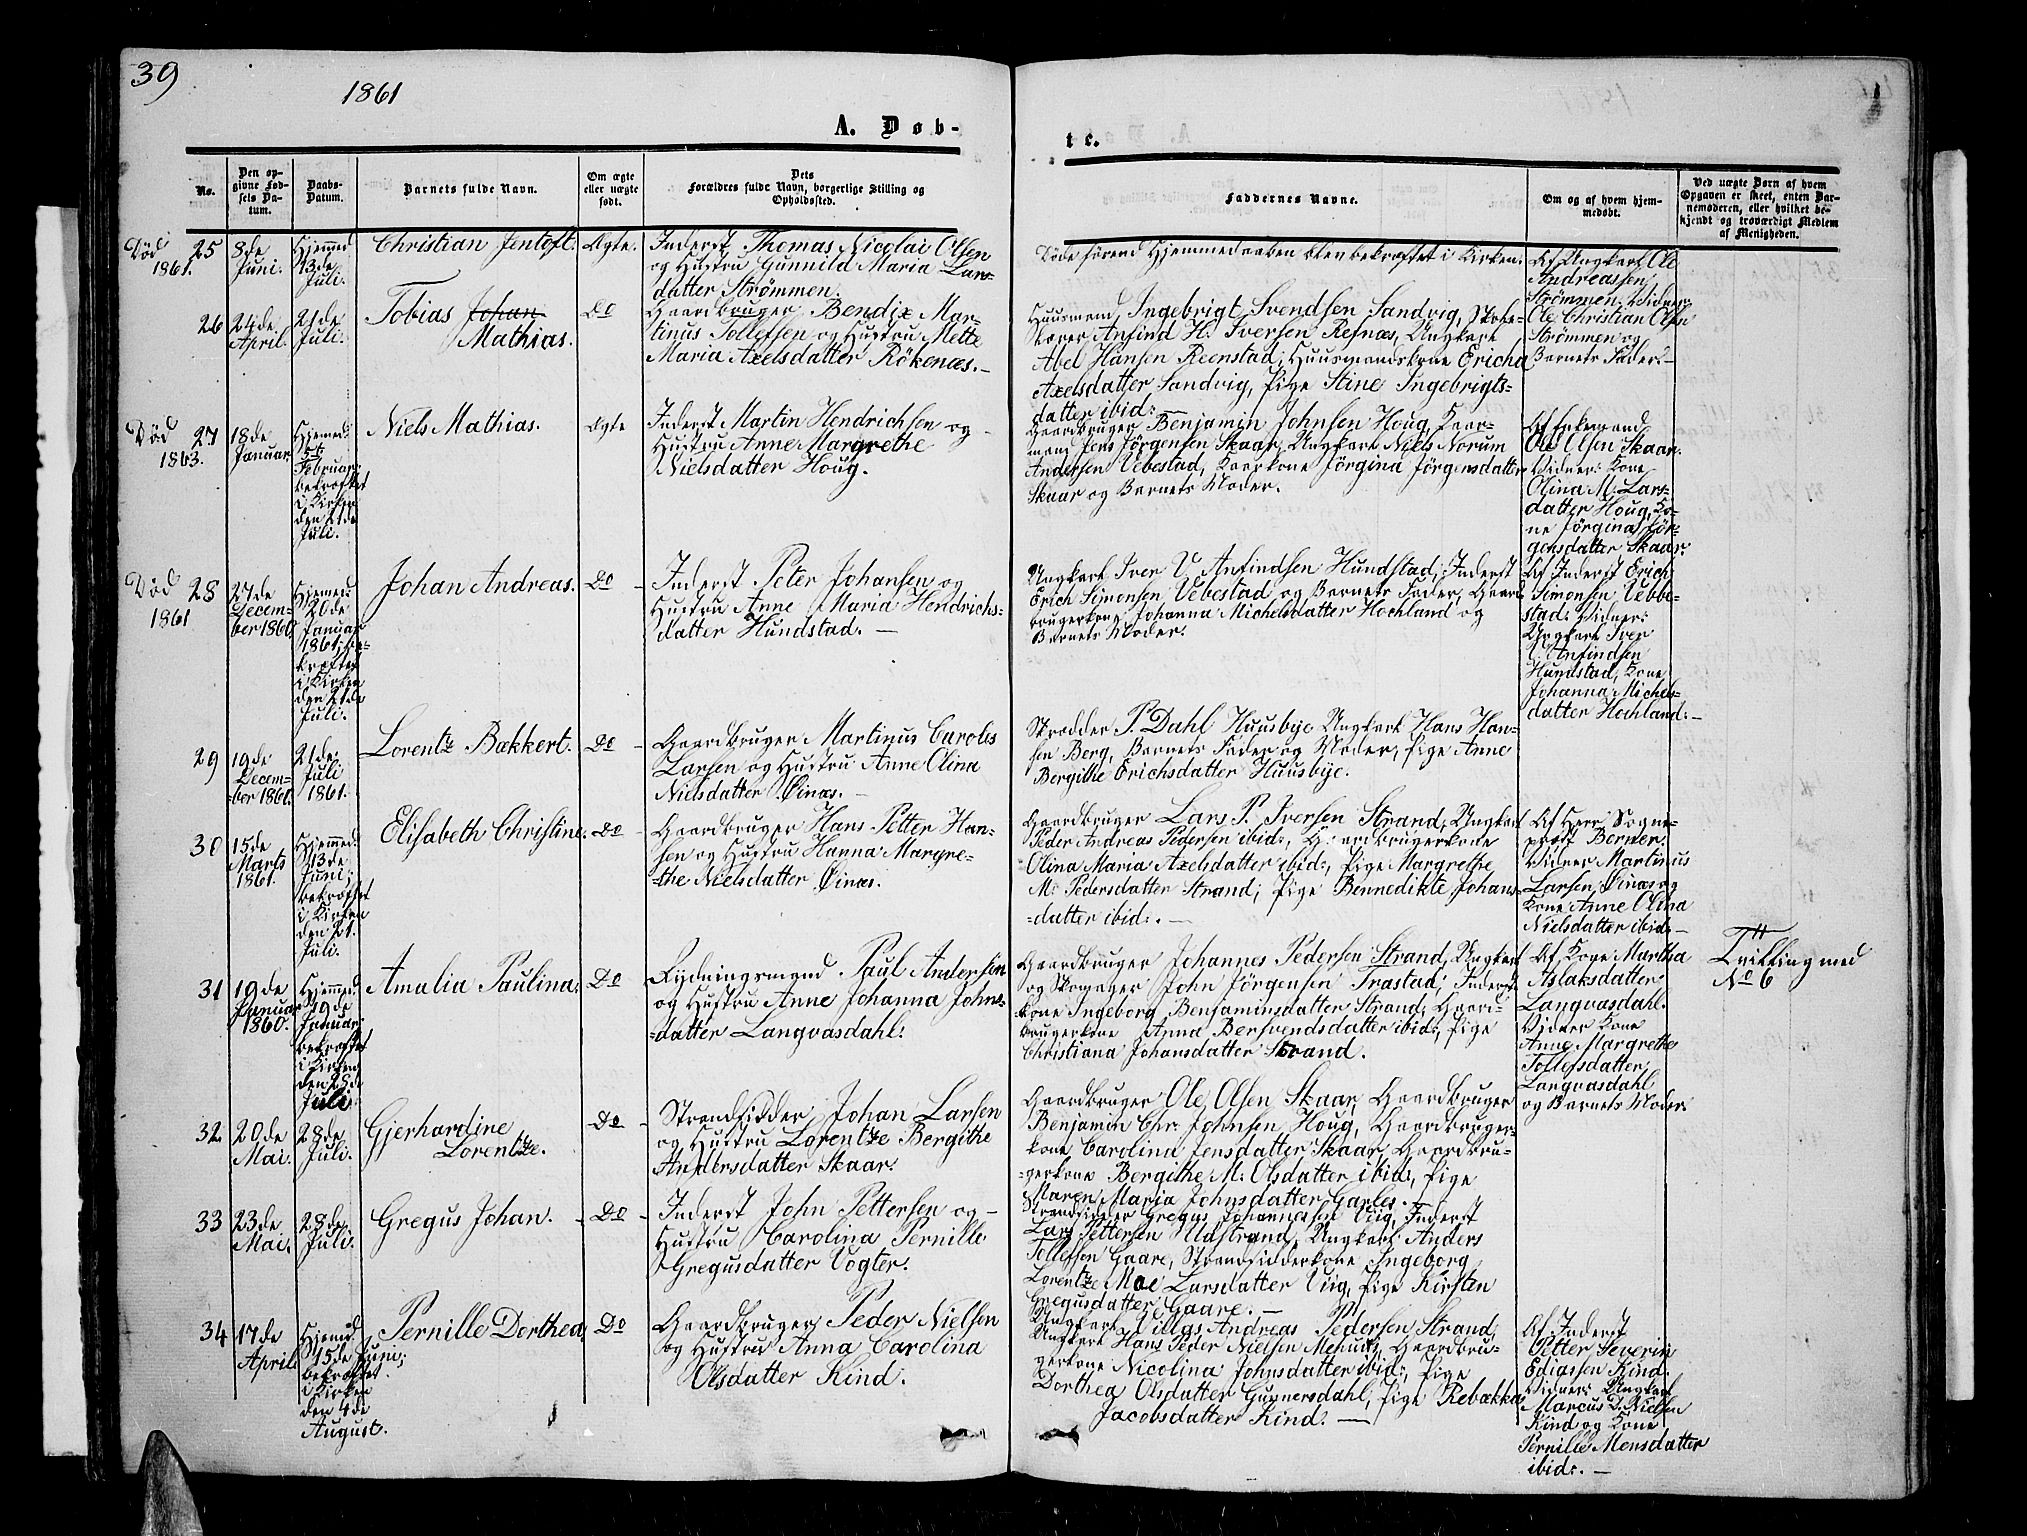 39
1861
A. Døb-
te.
No.
Den op-
givne Fød-
sels Da-
tum.
Daabs-
Datum.
Barnets fulde Navn.
Om ægte
eller uægte
født.
Dets
Forældres fulde Navn, borgerlige Stilling og
Opholdssted.
Faddernes Navne.
Om og af hvem hjem-
medøbt.
Ved uægte Børn af hvem
Opgaven er skeet, enten Bar-
nemoderen, eller hvilket be-
kjendt og troværdigt Medlem
af Menigheden.
Død 25
1861.
8de
Juni.
Hjemmed
13de
Juli.
Christian Jentoft.
Ægte.
Inderst Thomas Nicolai Olsen
og Hustru Gunnild Maria Lars-
datter Strømmen.
Døde førend Hjemmedaaben blev bekræftet i Kirken.
Af Ungkarl Ole
Andreassen
Strømmen. Vidner:
Ole Christian Olsen
Strømmen og
Barnets Fader.-
26
24de
April.
21de
Juli.
Tobias Johan
Mathias.
Do
Gaardbruger Bendix Mar-
tinus Tollefsen og Hustru Mette
Maria Axelsdatter Rökenæs.-
Huusmand Ingebrigt Svendsen Sandvig, Skole-
lærer Anfind H. Iversen Refnæs, Ungkarl
Abel Hansen Reenstad, Huusmandskone Ericha
Axelsdatter Sandvig, Pige Stine Ingebrigts-
datter ibid:-
Død 27
1863.
18de
Januar
Hjemmed:
5te
Februar;
bekræftet
i Kirken
den 21de
Juli.
Niels Mathias.
Ægte
Inderst Martin Hendrichsen og
Hustru Anne Margrethe
Nielsdatter Houg.
Gaardbruger Benjamin Johnsen Houg, Kaar-
mand Jens Jørgensen Skaar, Ungkarl Niels Norum
Andersen Vebestad, Kaarkone Jørgina Jørgensdatter
Skaar og Barnets Moder.
Af Enkemand
Ole Olsen Skaar.
Vidner: Kone
Olina M. Lars-
datter Houg, Ko-
ne Jørgina Jør-
gensdatter Skaar.
Død 28
1861
27de
Decem-
ber 1860
Hjemmed:
20de
Januar
1861; be-
kræftet
i Kirken
den 21de
Juli.
Johan Andreas.
Do
Inderst Peter Johansen og
Hustru Anne Maria Hendrichs-
datter Hundstad.-
Ungkarl Iver V. Anfindsen Hundstad, Inderst
Erich Simonsen Vebestad og Barnets Fader, Gaard-
brugerkone Johanna Michelsdatter Hochland og
Barnets Moder.
Af Inderst Erich
Simonsen Vebbe-
stad. Vidner:
Ungkarl Iver
V. Anfindsen
Hundstad, Kone
Johanna Michels-
datter Hochland.-
29
19de
Decem-
ber 1860.
21de
Juli
1861.
Lorentze Bækkert.
Do
Gaardbruger Martinus Caroles
Larsen og Hustru Anne Olina
Nielsdatter Øinæs.-
Skrædder P. Dahl Huusbye, Ungkarl Hans Han-
sen Berg, Barnets Fader og Moder, Pige Anne
Bergithe Erichsdatter Huusbye.
30
15de
Marts
1861.
Hjemmed:
13de
Juni;
bekræftet
i Kirken
den 21.
Juli.
Elisabeth Christine.
Do
Gaardbruger Hans Petter Han-
sen og Hustru Hanna Margre-
the Nielsdatter Øinæs.
Gaardbruger Lars P. Iversen Strand, Ungkarl
Peder Andreas Pedersen ibid:, Gaardbrugerkone
Olina Maria Axelsdatter ibid:, Pige Margrethe
M. Pedersdatter Strand; Pige Bennedikte Johans-
datter ibid:.-
Af Herr Sogne-
præst Berner.
Vidner Martinus
Larsen Øinæs og
Kone Anne Olina
Nielsdatter ibid:-
31
19de
Januar
1860.
Hjemmed:
19de
Januar;
bekræftet
i Kirken
den 28de
Juli.
Amalia Paulina.
Do
Rydningsmand Paul Andersen
og Hustru Anne Johanna Johns-
datter Langvasdahl.
Gaardbruger Johannes Pedersen Strand, Ungkarl
og Skomager John Jörgensen Trastad; Inderst-
kone Ingeborg Benjaminsdatter Strand, Gaard-
brugerkone Anna Bersvendsdatter ibid:, Pige
Christiana Johansdatter Strand.
Af Kone Martha
Aslaksdatter
Langvasdahl.
Vidner Kone
Anne Margrethe
Tollefsdatter
Langvasdahl
og Barnets Moder.
Tvilling med
No 6
32
20de
Mai.
28de
Juli.
Gjerhardine
Lorentze.
Do
Strandsidder Johan Larsen
og Hustru Lorentze Bergithe
Andersdatter Skaar.
Gaardbruger Ole Olsen Skaar, Gaardbruger
Benjamin Chr. Johnsen Houg, Gaardbruger-
kone Carolina Jensdatter Skaar, Gaardbru-
gerkone Bergithe M. Olsdatter ibid:, Pige
Maren Maria Johnsdatter Garles.-
33
23de
Mai.
28de
Juli.
Gregus Johan.
Do
Inderst John Pettersen og
Hustru Carolina Pernille
Gregusdatter Vogter.
Strandsidder Gregus Johannessen Viig, Inderst
Lars Pettersen Udstrand, Ungkarl Anders
Tollefsen Gaare, Strandsidderkone Ingeborg
Lorentze Moe Larsdatter Viig, Pige Kirsten
Gregusdatter Gaare.-
34
17de
April.
Hjemmd
15de Juni;
bekræftet
i Kirken
den 4de
August.
Pernille Dorthea
Do
Gaardbruger Peder Nielsen
og Hustru Anna Carolina
Olsdatter Kind.
Ungkarl Villas Andreas Pedersen Strand,
Ungkarl Hans Peder Nielsen, Gaardbru-
gerkone Nicolina Johnsdatter ibid:, Pige
Dorthea Olsdatter Gugnersdahl, Pige Rebækka
Jacobsdatter Kind.-
Af Inderst
Petter Severin
Ediassen Kind.
Vidner: Ungkarl
Marcus D. Nielsen
Kind og Kone
Pernille Monsdatter
ibid:.-